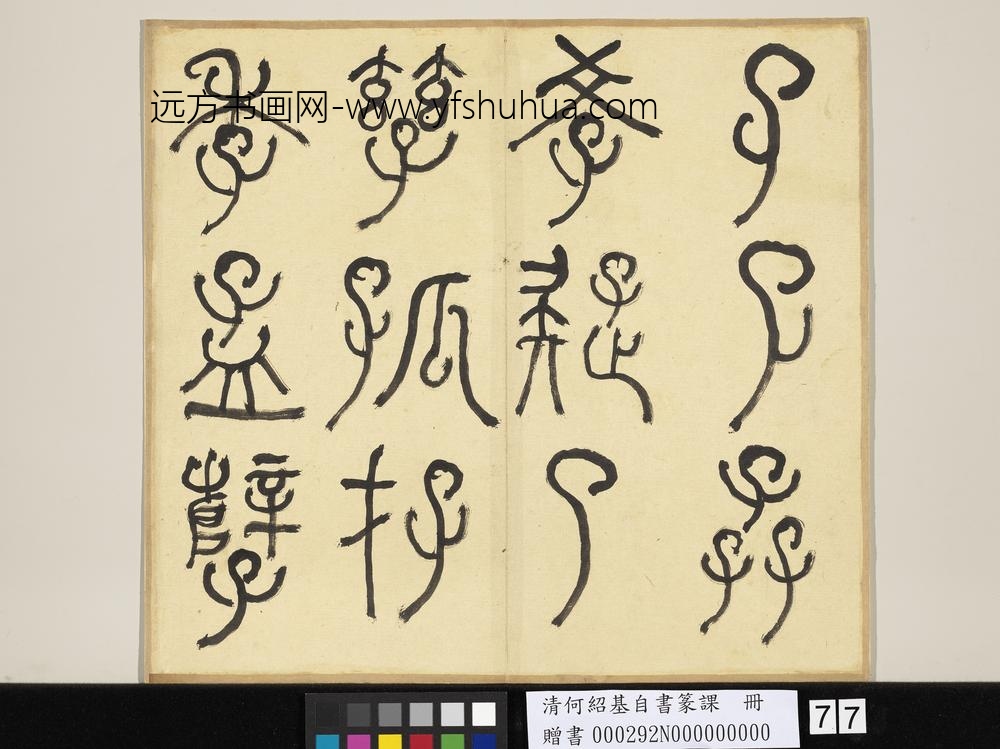 季孟孽
孳孤存
𡥈疑了
孑孓孨
远方书画网-www.yfshuhua.com
清何紹基自書篆課 冊
贈書 000292N000000000
77